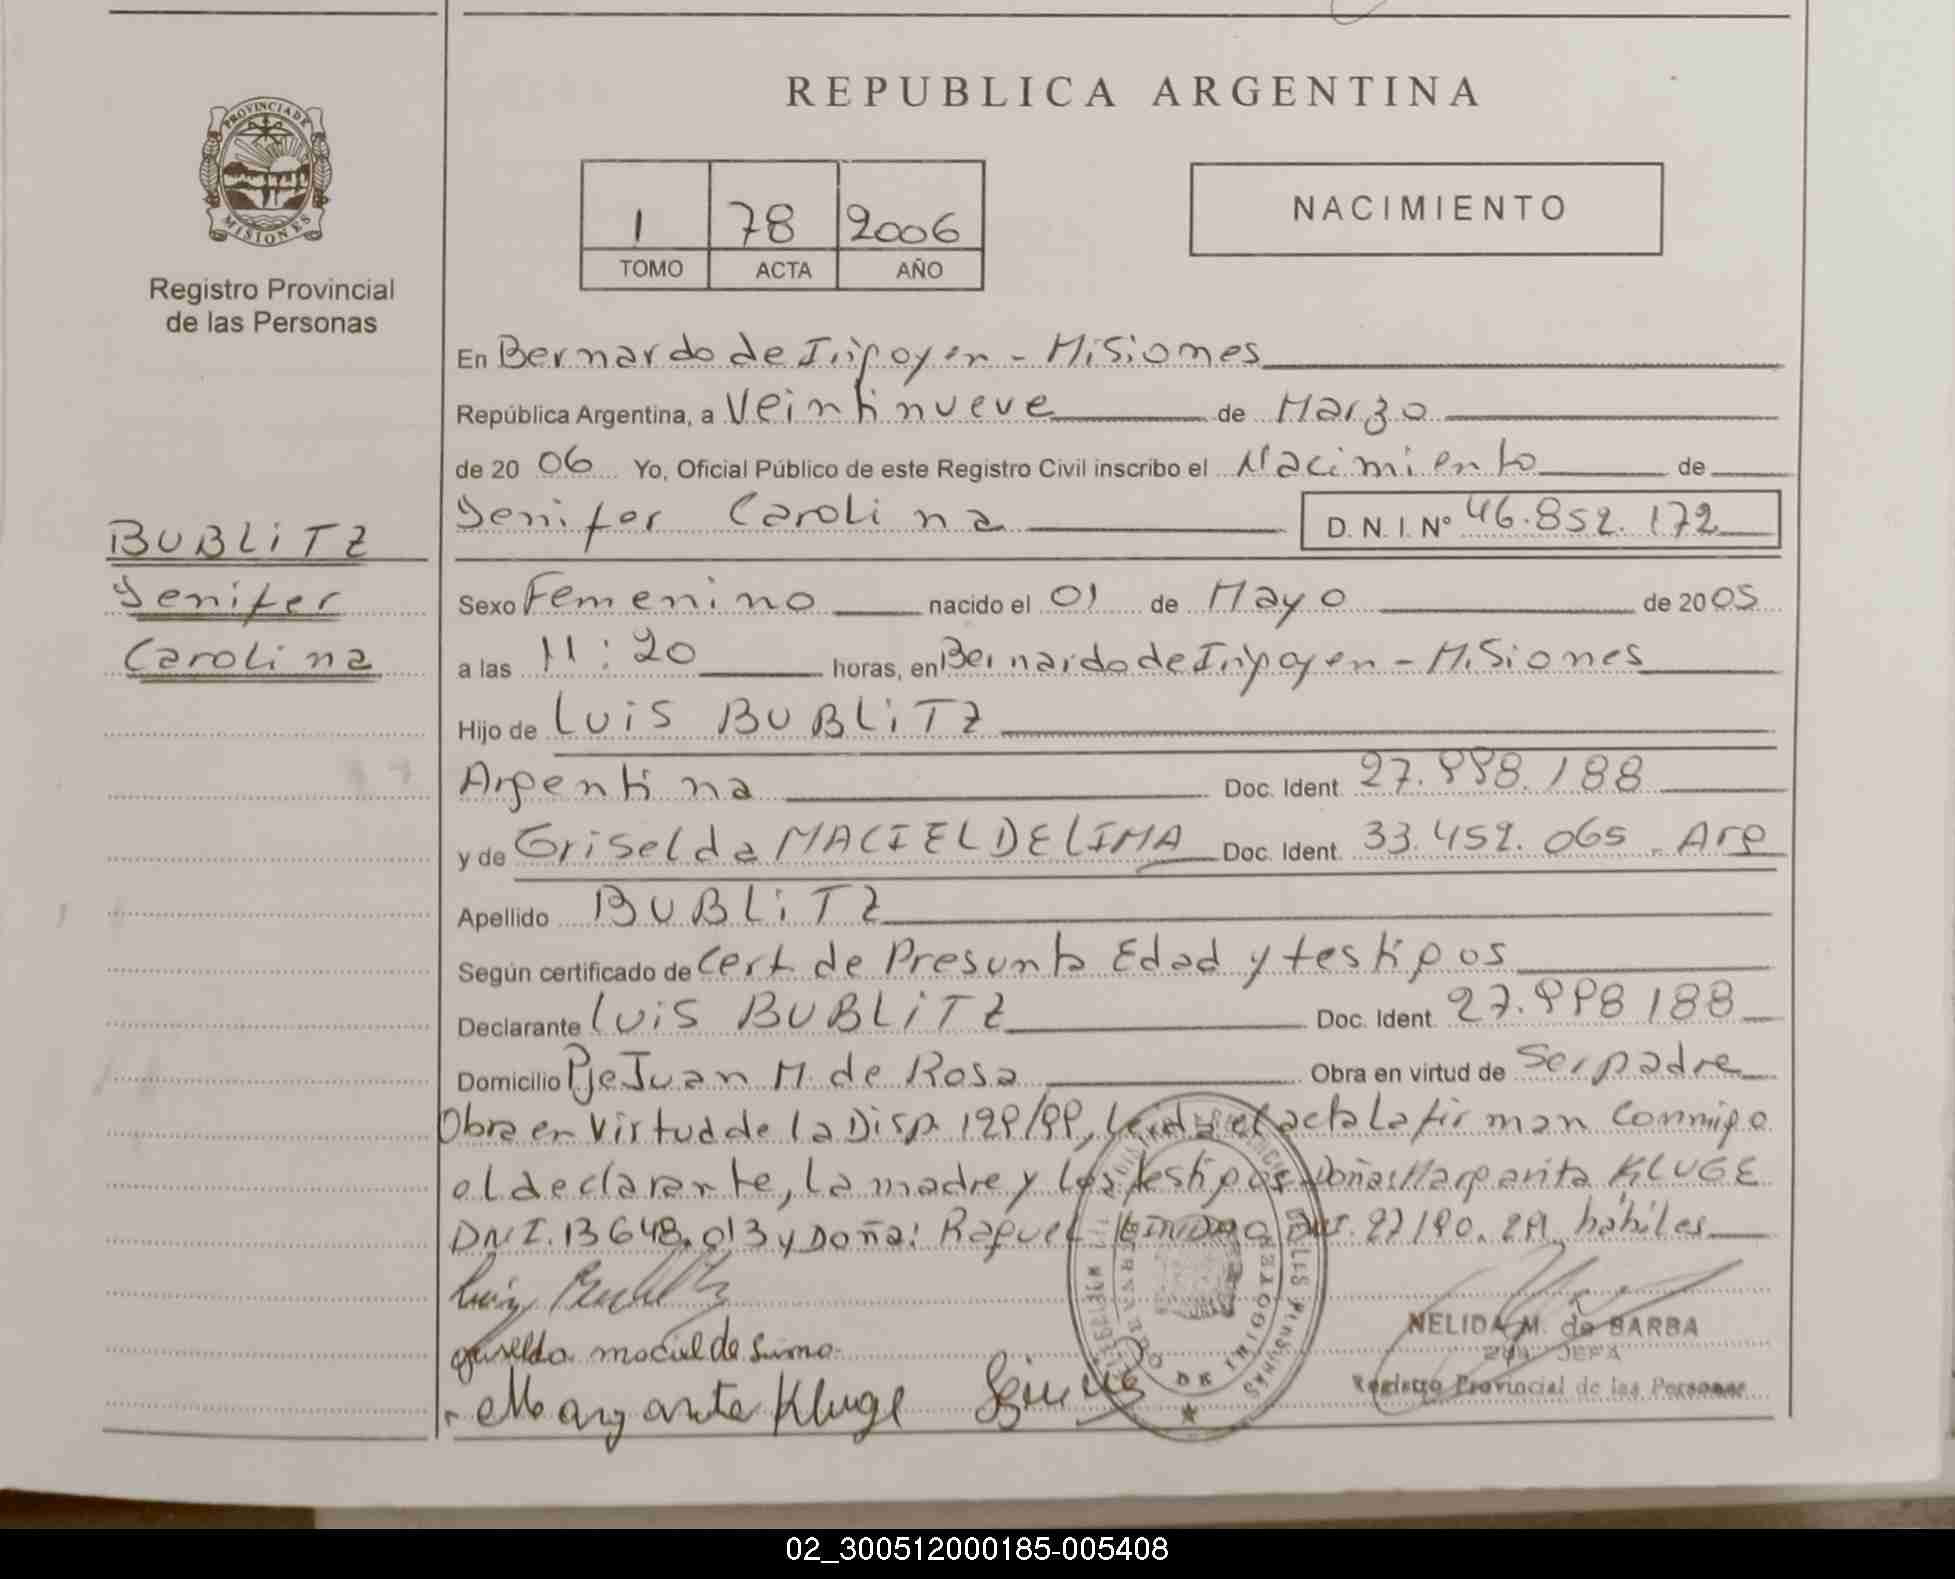 REPUBLICA ARGENTINA
PROVINCIA DE MISIONES
Registro Provincial
de las Personas
1 78 2006
TOMO ACTA AÑO
NACIMIENTO
BUBLiTZ
Yenifer
Carolina
En Bernardo de Irigoyen - Misiones
República Argentina, a Veintinueve de Marzo
de 20 06 Yo, Oficial Público de este Registro Civil inscribo el Nacimiento de
Yenifer Carolina D. N. I. N° 46.852.172
Sexo Femenino nacido el 01 de Mayo de 20 05
a las 11:20 horas, en Bernardo de Irigoyen - Misiones
Hijo de Luis BUBLiTZ
Argentina Doc. Ident. 27.998.188
y de Griselda MACIEL DE LIMA Doc. Ident. 33.452.065. Arg
Apellido BUBLiTZ
Según certificado de Cert de Presunta Edad y testigos
Declarante Luis BUBLiTZ Doc. Ident. 27.998188
Domicilio Pje Juan M. de Rosa Obra en virtud de Ser padre
Obra en Virtud de la Disp. 199/99, Leida el acta La firman Conmigo
el declarante, La madre y Los testigos Doña: Margarita KLUGE
DNI. 13648.013 y Doña: Raquel hábiles
Luis Bublitz
Griselda maciel de Lima
Margarita Kluge
NELIDA M. de BARBA
JEFA
Registro Provincial de las Personas
02_300512000185-005408